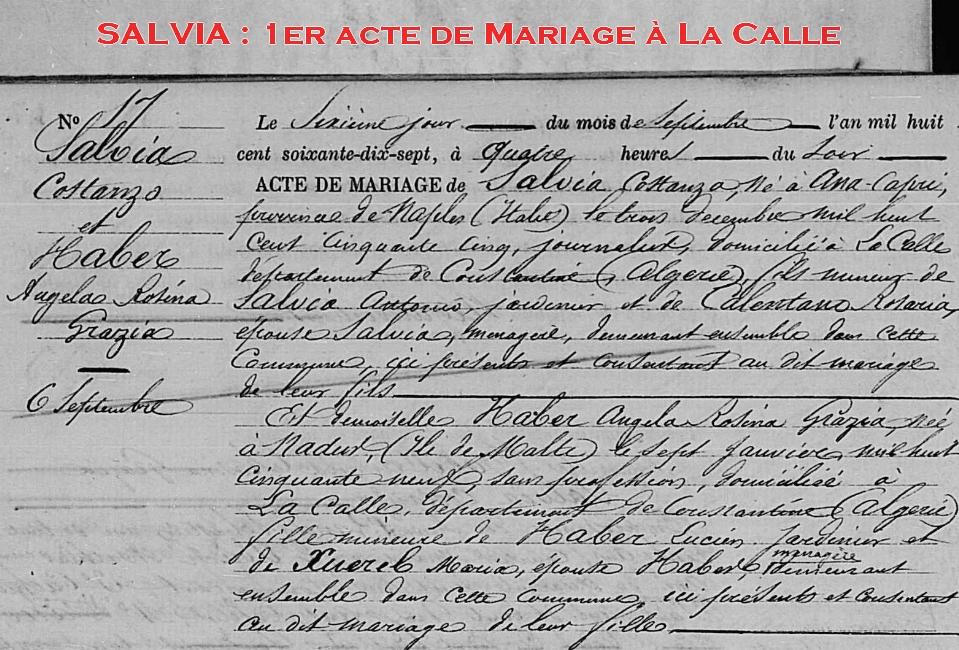 SALVIA : 1ER ACTE DE MARIAGE À LA CALLE
N° 17
Salvia
Costanzo
et
Haber
Angela Rosina
Grazia
6 Septembre
Le Sixième jour du mois de Septembre l'an mil huit
cent soixante-dix-sept, à quatre heures du soir
ACTE DE MARIAGE de Salvia Costanzo, né à Ana-Capri,
province de Naples (Italie) le trois decembre mil huit
cent cinquante cinq, journalier, domicilié à La Calle
département de Constantine (Algerie), fils mineur de
Salvia Antonio, jardinier et de Calentano Rosaria,
épouse Salvia, menagère, demeurant ensemble dans cette
Commune, ici présents et consentant au dit mariage
de leur fils
Et demoiselle Haber Angela Rosina Grazia, née
à Nadur, (Ile de Malte) le sept Janvier mil huit
cinquante neuf, sans profession, domiciliée à
La Calle, département de Constantine (Algerie)
fille mineure de Haber Lucien Jardinier et
de Xuereb Maria, épouse Haber, menagère demeurant
ensemble dans cette Commune, ici présents et consentant
au dit mariage de leur fille